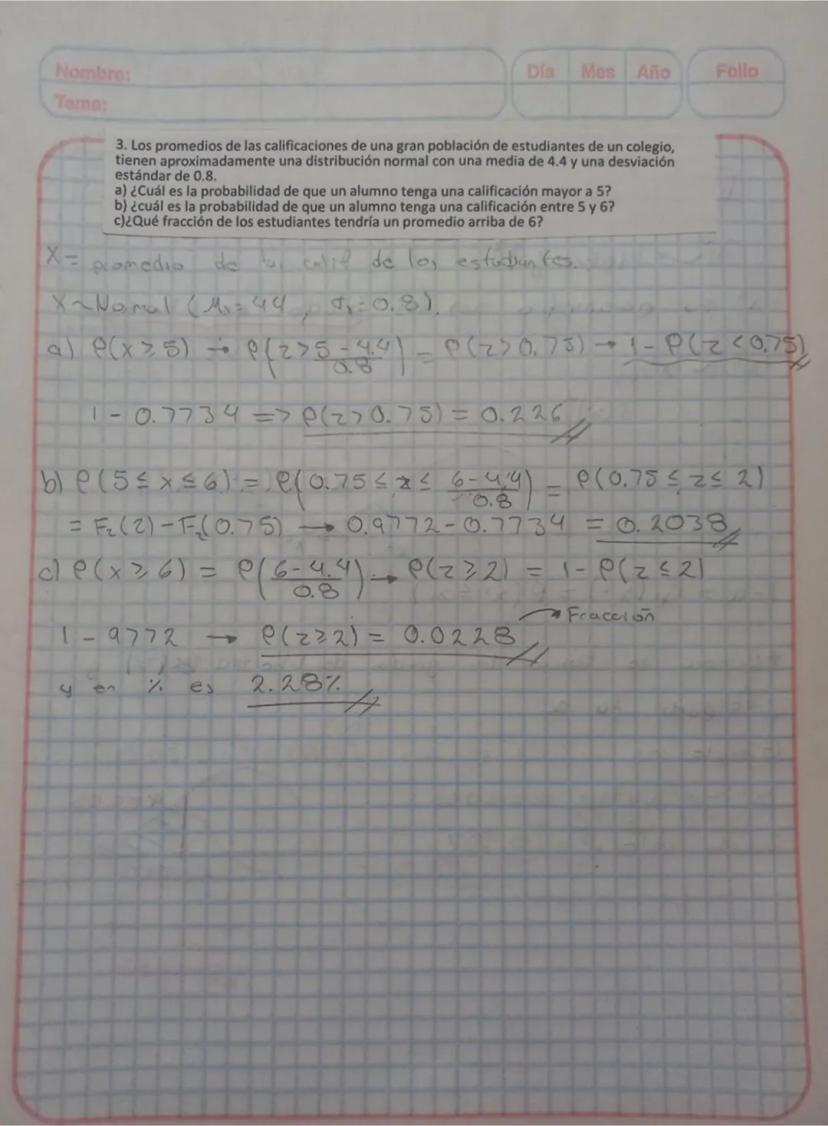 Nombre:
Día Mes Año
Folio
Tema:
3. Los promedios de las calificaciones de una gran población de estudiantes de un colegio,
tienen aproximadamente una distribución normal con una media de 4.4 y una desviación
estándar de 0.8.
a) ¿Cuál es la probabilidad de que un alumno tenga una calificación mayor a 5?
b) ¿cuál es la probabilidad de que un alumno tenga una calificación entre 5 y 6?
c)¿Qué fracción de los estudiantes tendría un promedio arriba de 6?
X = promedio de calif de los estudiantes.
X~Normal (μx = 44, σx = 0.8).
a) P(x ≥ 5) → P(z > 5 - 4.4 / 0.8) = P(z > 0.75) → 1 - P(z < 0.75)
1 - 0.7734 => P(z > 0.75) = 0.226
b) P(5 ≤ x ≤ 6) = P(0.75 ≤ x ≤ 6 - 4.4 / 0.8) = P(0.75 ≤ z ≤ 2)
= Fz(2) - Fz(0.75) → 0.9772 - 0.7734 = 0.2038
c) P(x ≥ 6) = P(6 - 4.4 / 0.8) → P(z ≥ 2) = 1 - P(z ≤ 2)
1 - 9772 → P(z ≥ 2) = 0.0228 → Fracción
y en % es 2.28%